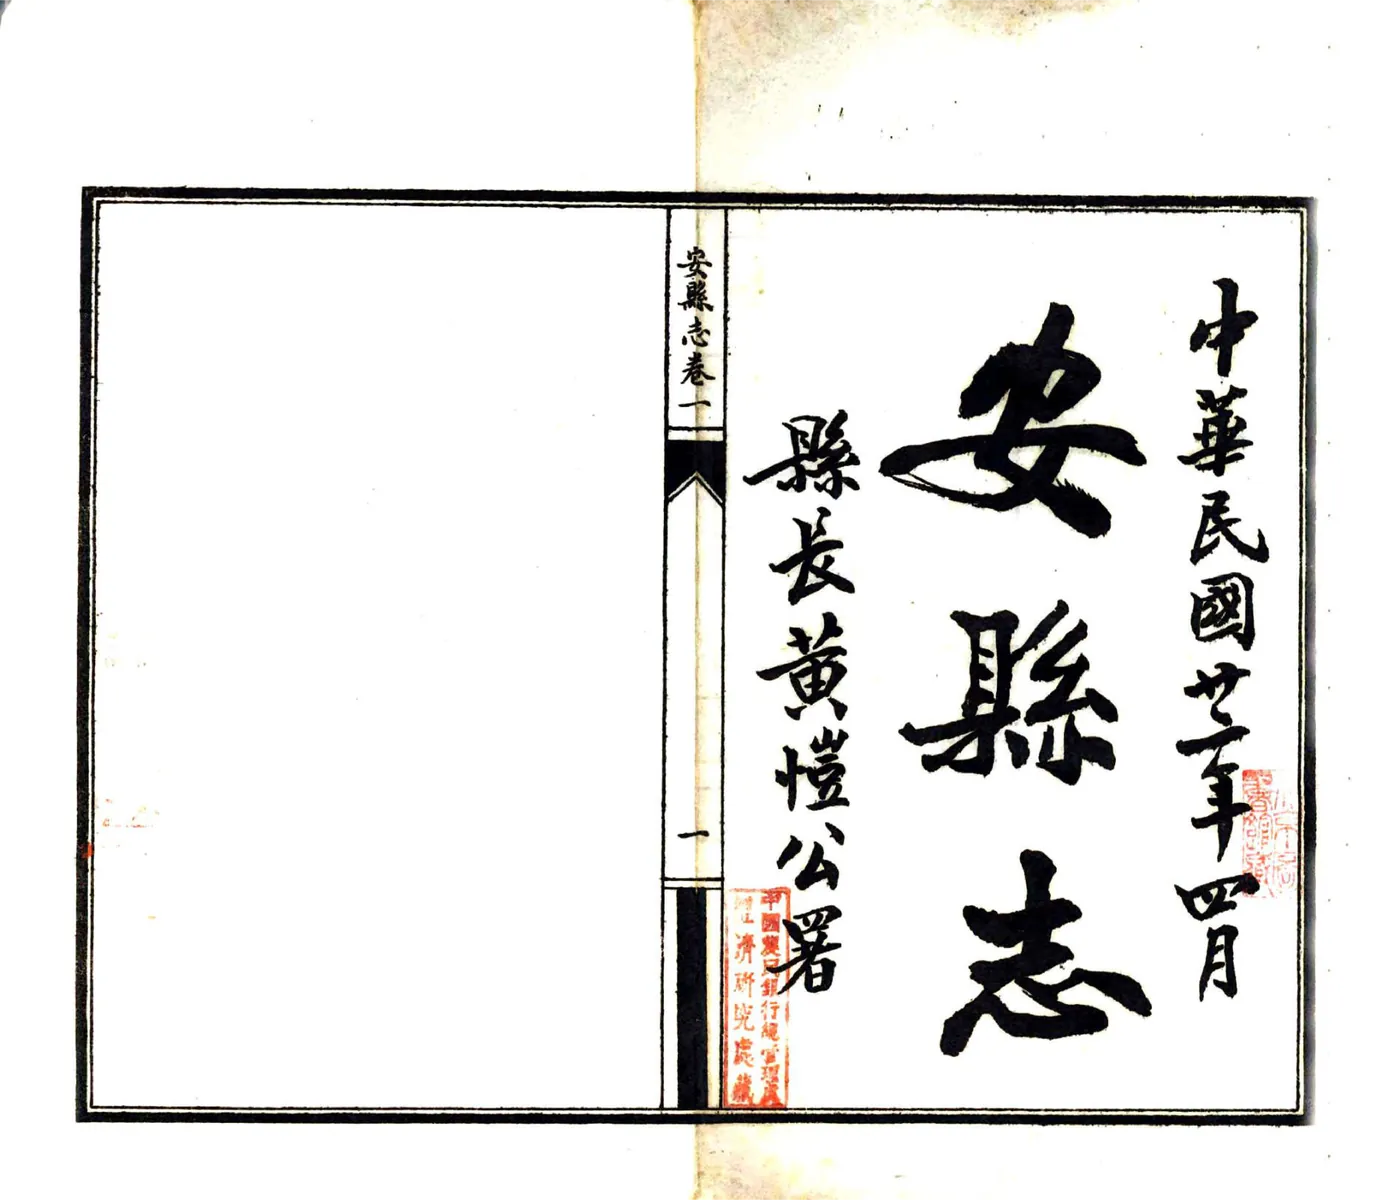 中華民國廿二年四月
安縣志
縣長黃愷公署
中國農民銀行總管理處
經濟研究處藏
安縣志卷一
一